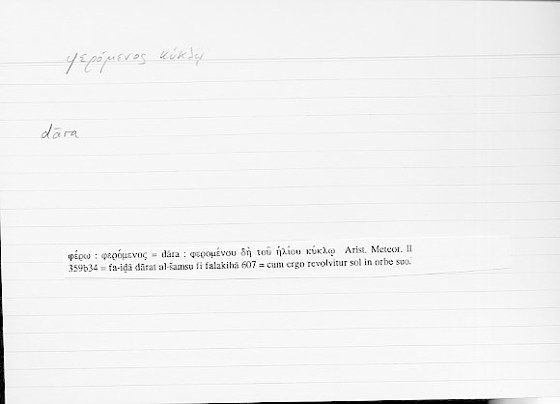 φερόμενος κύκλῳ
dāra
φέρω : φερόμενος = dāra : φερομένου δὴ τοῦ ἡλίου κύκλῳ Arist. Meteor. II
359b34 = fa-iḏā dārat al-šamsu fī falakihā 607 = cum ergo revolvitur sol in orbe suo.